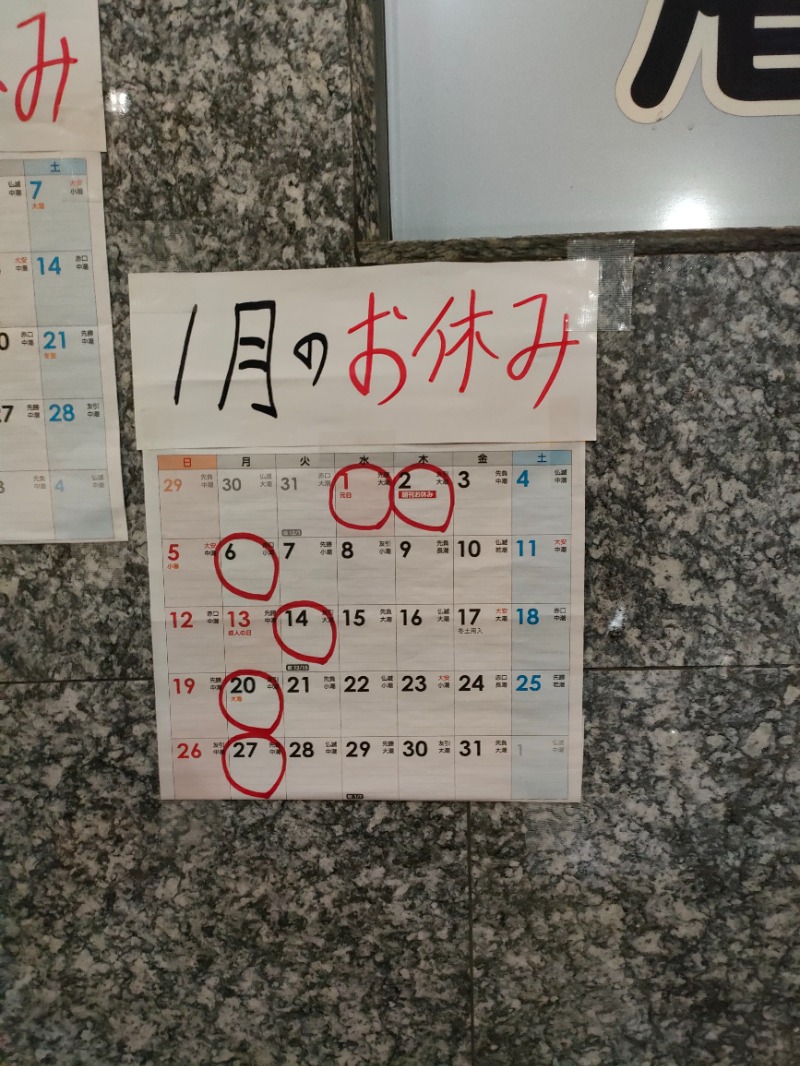 み
土
7 大安 小潮
大潮
14 赤口 中潮
21 先勝 中潮
冬至
28 友引 中潮
4
1月のお休み
日 月 火 水 木 金 土
29 先負 中潮 30 仏滅 大潮 31 赤口 大潮 1 2 3 先負 中潮 4 仏滅 中潮
元日
5 大安 中潮 6 7 先勝 小潮 8 友引 小潮 9 先負 長潮 10 仏滅 若潮 11 大安 中潮
小寒
12 赤口 中潮 13 先勝 14 15 先負 大潮 16 仏滅 大潮 17 大安 大潮 18 赤口 中潮
成人の日 冬土用入
19 先勝 中潮 20 21 先負 小潮 22 仏滅 小潮 23 大安 小潮 24 赤口 長潮 25 先勝 若潮
大寒
26 友引 中潮 27 28 仏滅 中潮 29 先勝 大潮 30 友引 大潮 31 先負 大潮 1 仏滅 中潮